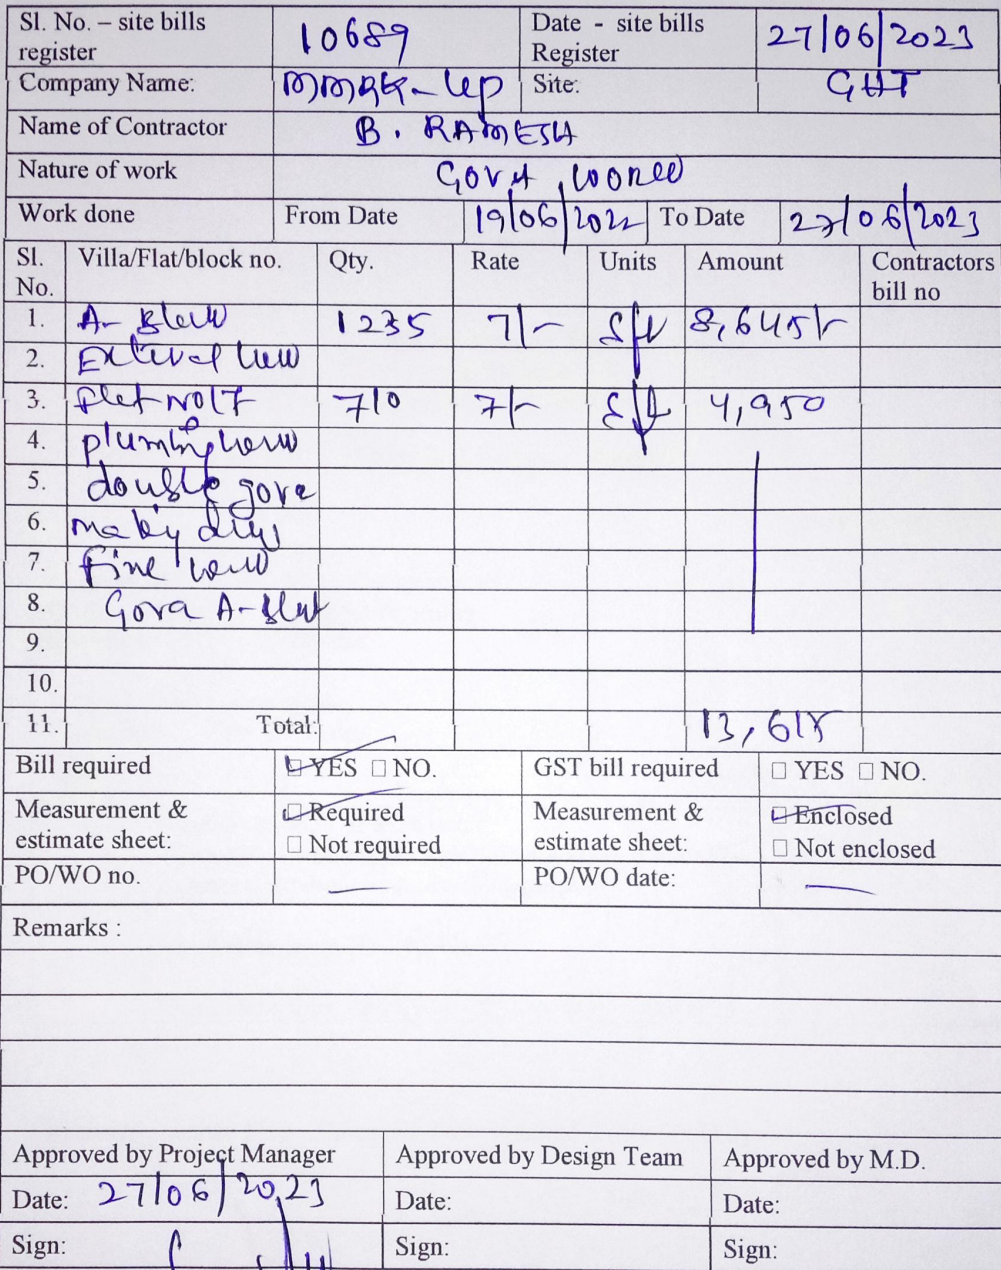 Sl. No. – site bills register 10689 Date - site bills Register 27/06/2023
Company Name: Site: GHT
Name of Contractor B. RAMESH
Nature of work
Work done From Date 19/06/2022 To Date 27/06/2023
Sl. No. Villa/Flat/block no. Qty. Rate Units Amount Contractors bill no
1. A- 1235 7/- Sft 8,645/-
2.
3. 710 7/- Sft 4,950
4.
5. double gova
6.
7. fine
8. Gova A-
9.
10.
11. Total: 13,615
Bill required ☑ YES ☐ NO. GST bill required ☐ YES ☐ NO.
Measurement & estimate sheet: ☑ Required ☐ Not required Measurement & estimate sheet: ☑ Enclosed ☐ Not enclosed
PO/WO no. — PO/WO date: —
Remarks :
Approved by Project Manager Approved by Design Team Approved by M.D.
Date: 27/06/2023 Date: Date:
Sign: Sign: Sign: